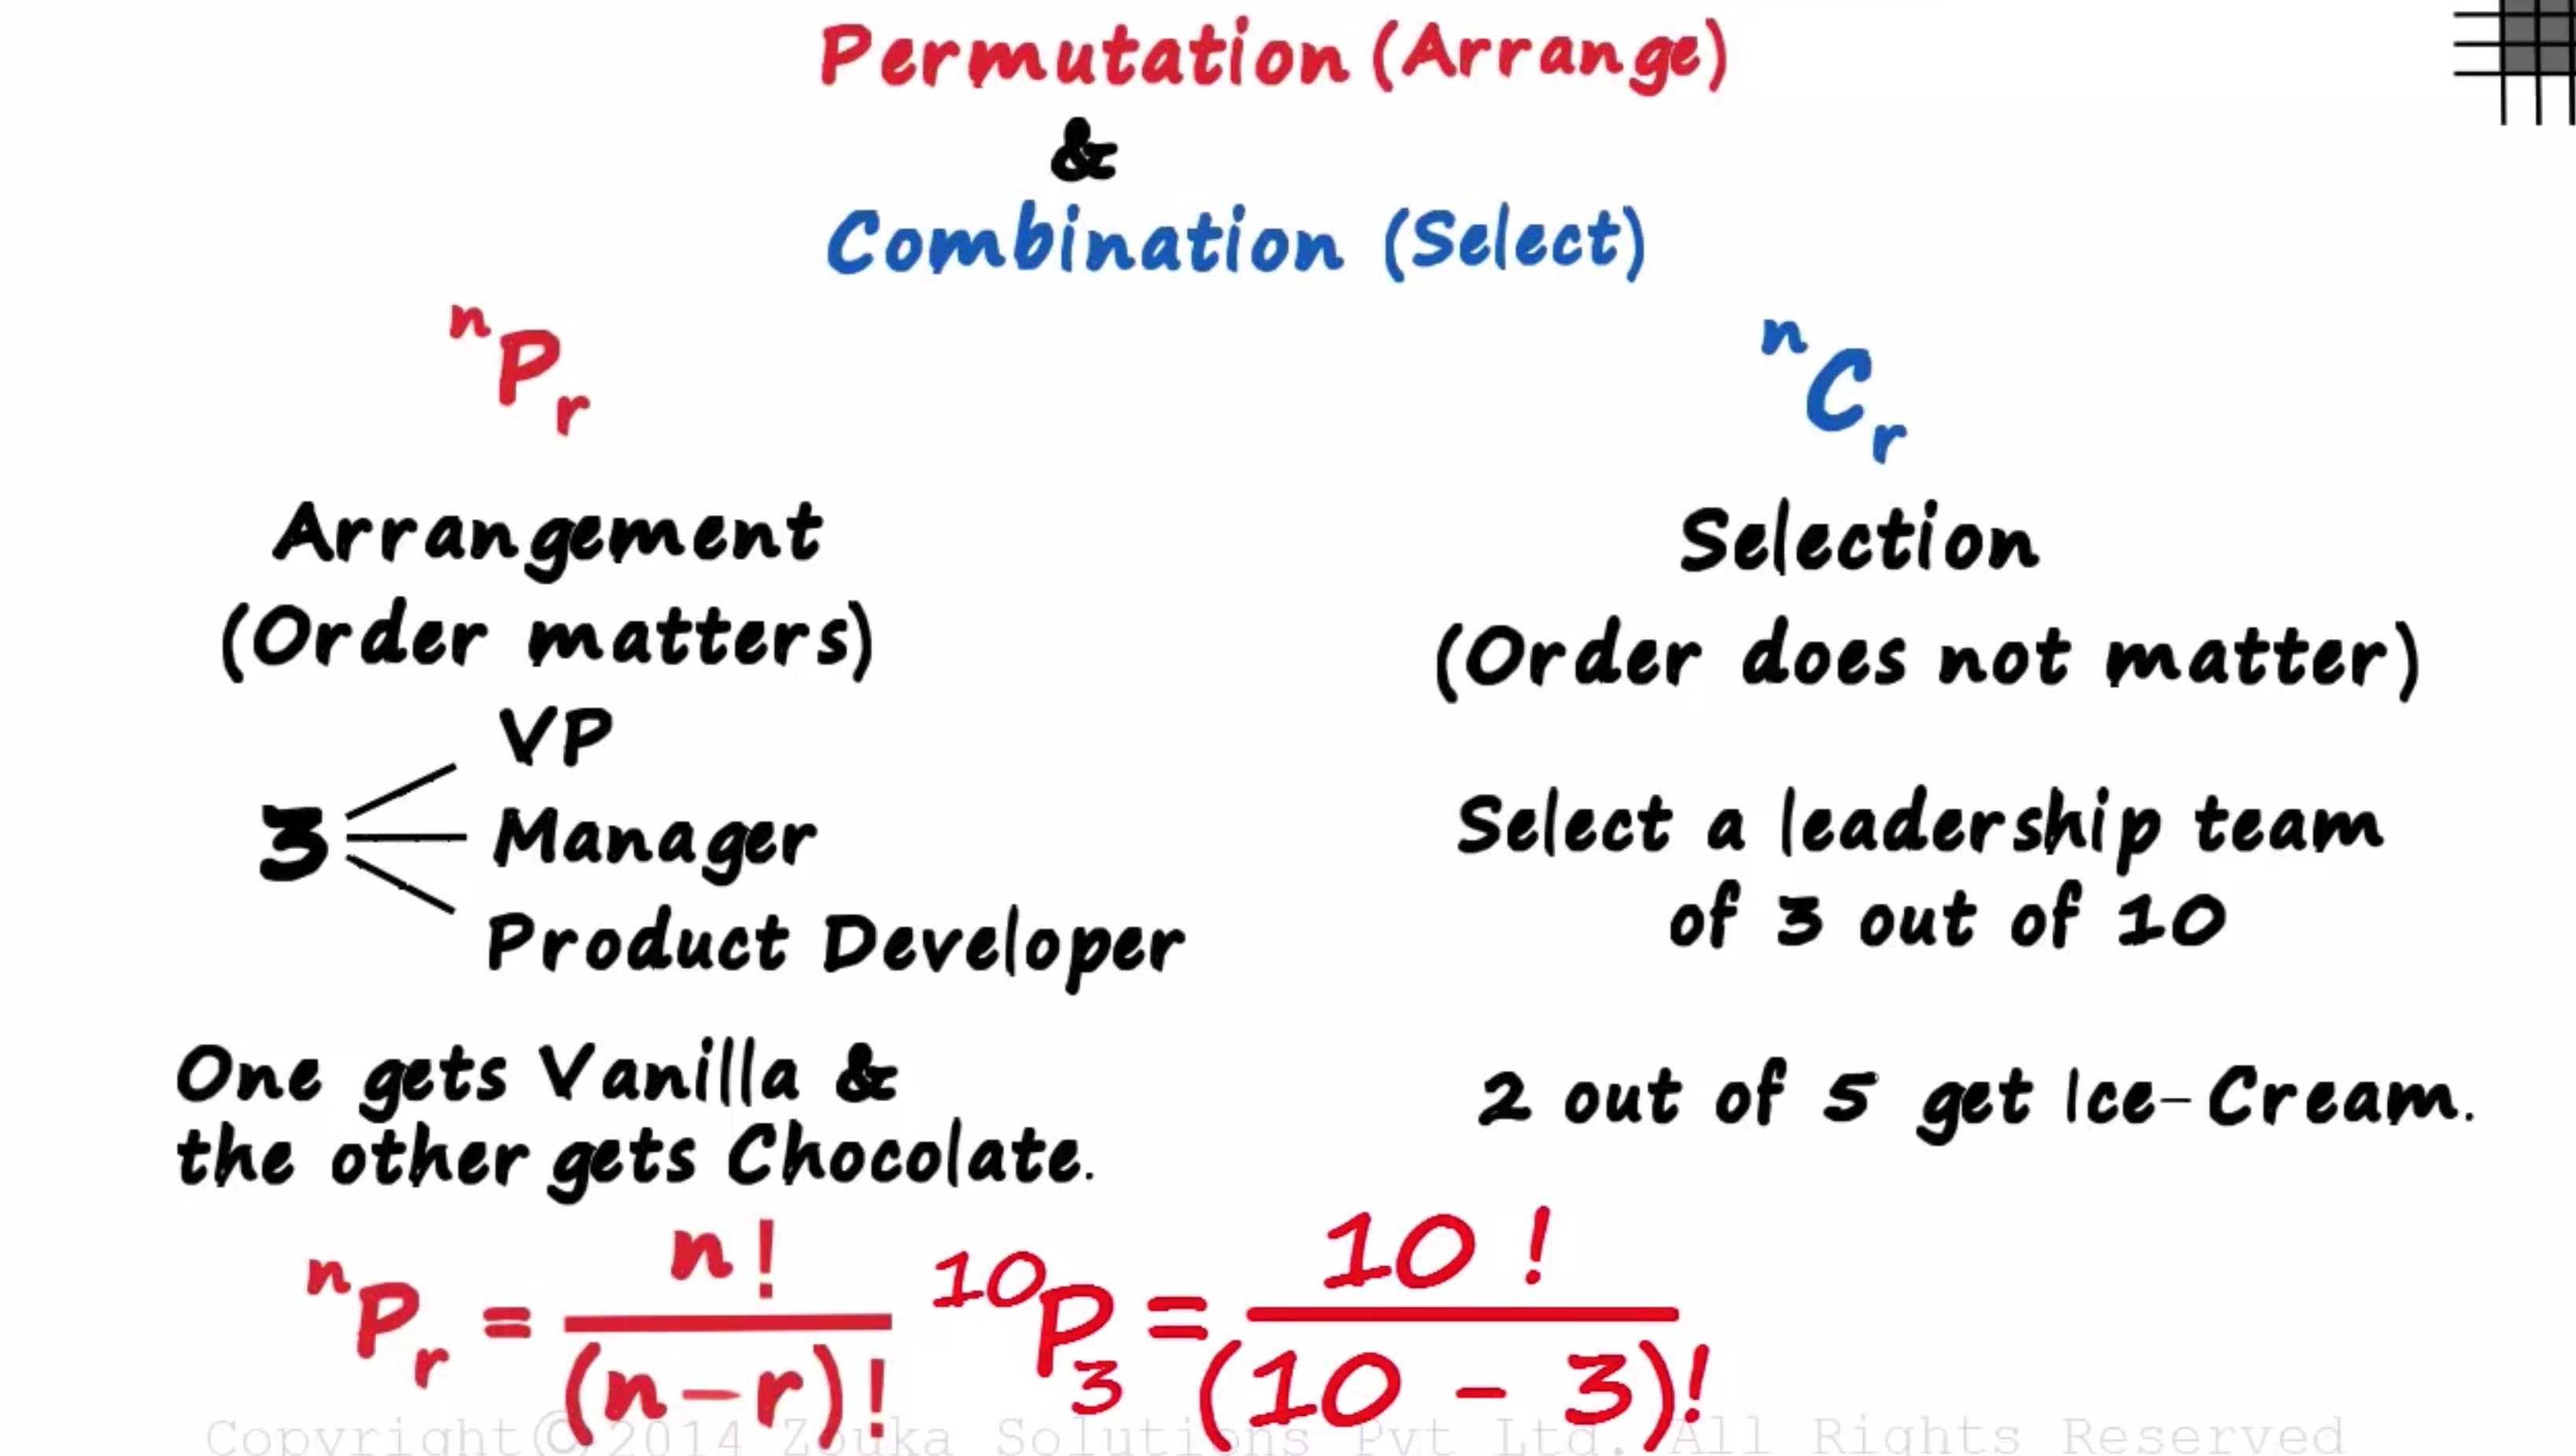 Permutation (Arrange)
&
Combination (Select)
nPr
nCr
Arrangement
(Order matters)
3
VP
Manager
Product Developer
One gets Vanilla &
the other gets Chocolate.
Selection
(Order does not matter)
Select a leadership team
of 3 out of 10
2 out of 5 get Ice-Cream.
nPr = n! / (n-r)!
10P3 = 10! / (10 - 3)!
Copyright © 2014 Zouka Solutions Pvt Ltd. All Rights Reserved